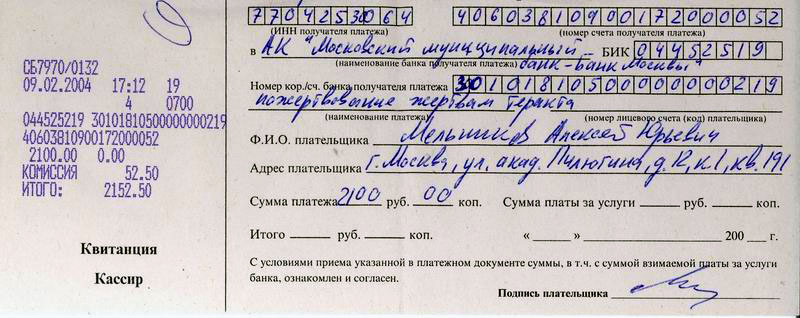 7704253064 40603810900172000052
(ИНН получателя платежа) (номер счета получателя платежа)
в АК "Московский муниципальный БИК 04452519
(наименование банка получателя платежа) банк-Банк Москвы"
Номер кор./сч. банка получателя платежа 30101810500000000219
пожертвование жертвам теракта
(наименование платежа) (номер лицевого счета (код) плательщика)
Ф.И.О. плательщика Мельников Алексей Юрьевич
Адрес плательщика г. Москва, ул. акад. Пилюгина, д. 12, к. 1, кв. 191
Сумма платежа 2100 руб. 00 коп. Сумма платы за услуги руб. коп.
Итого руб. коп. « » 200 г.
С условиями приема указанной в платежном документе суммы, в т.ч. с суммой взимаемой платы за услуги
банка, ознакомлен и согласен.
Подпись плательщика
СБ7970/0132
09.02.2004 17:12 19
4 0700
044525219 30101810500000000219
40603810900172000052
2100.00 0.00
КОМИССИЯ 52.50
ИТОГО: 2152.50
Квитанция
Кассир